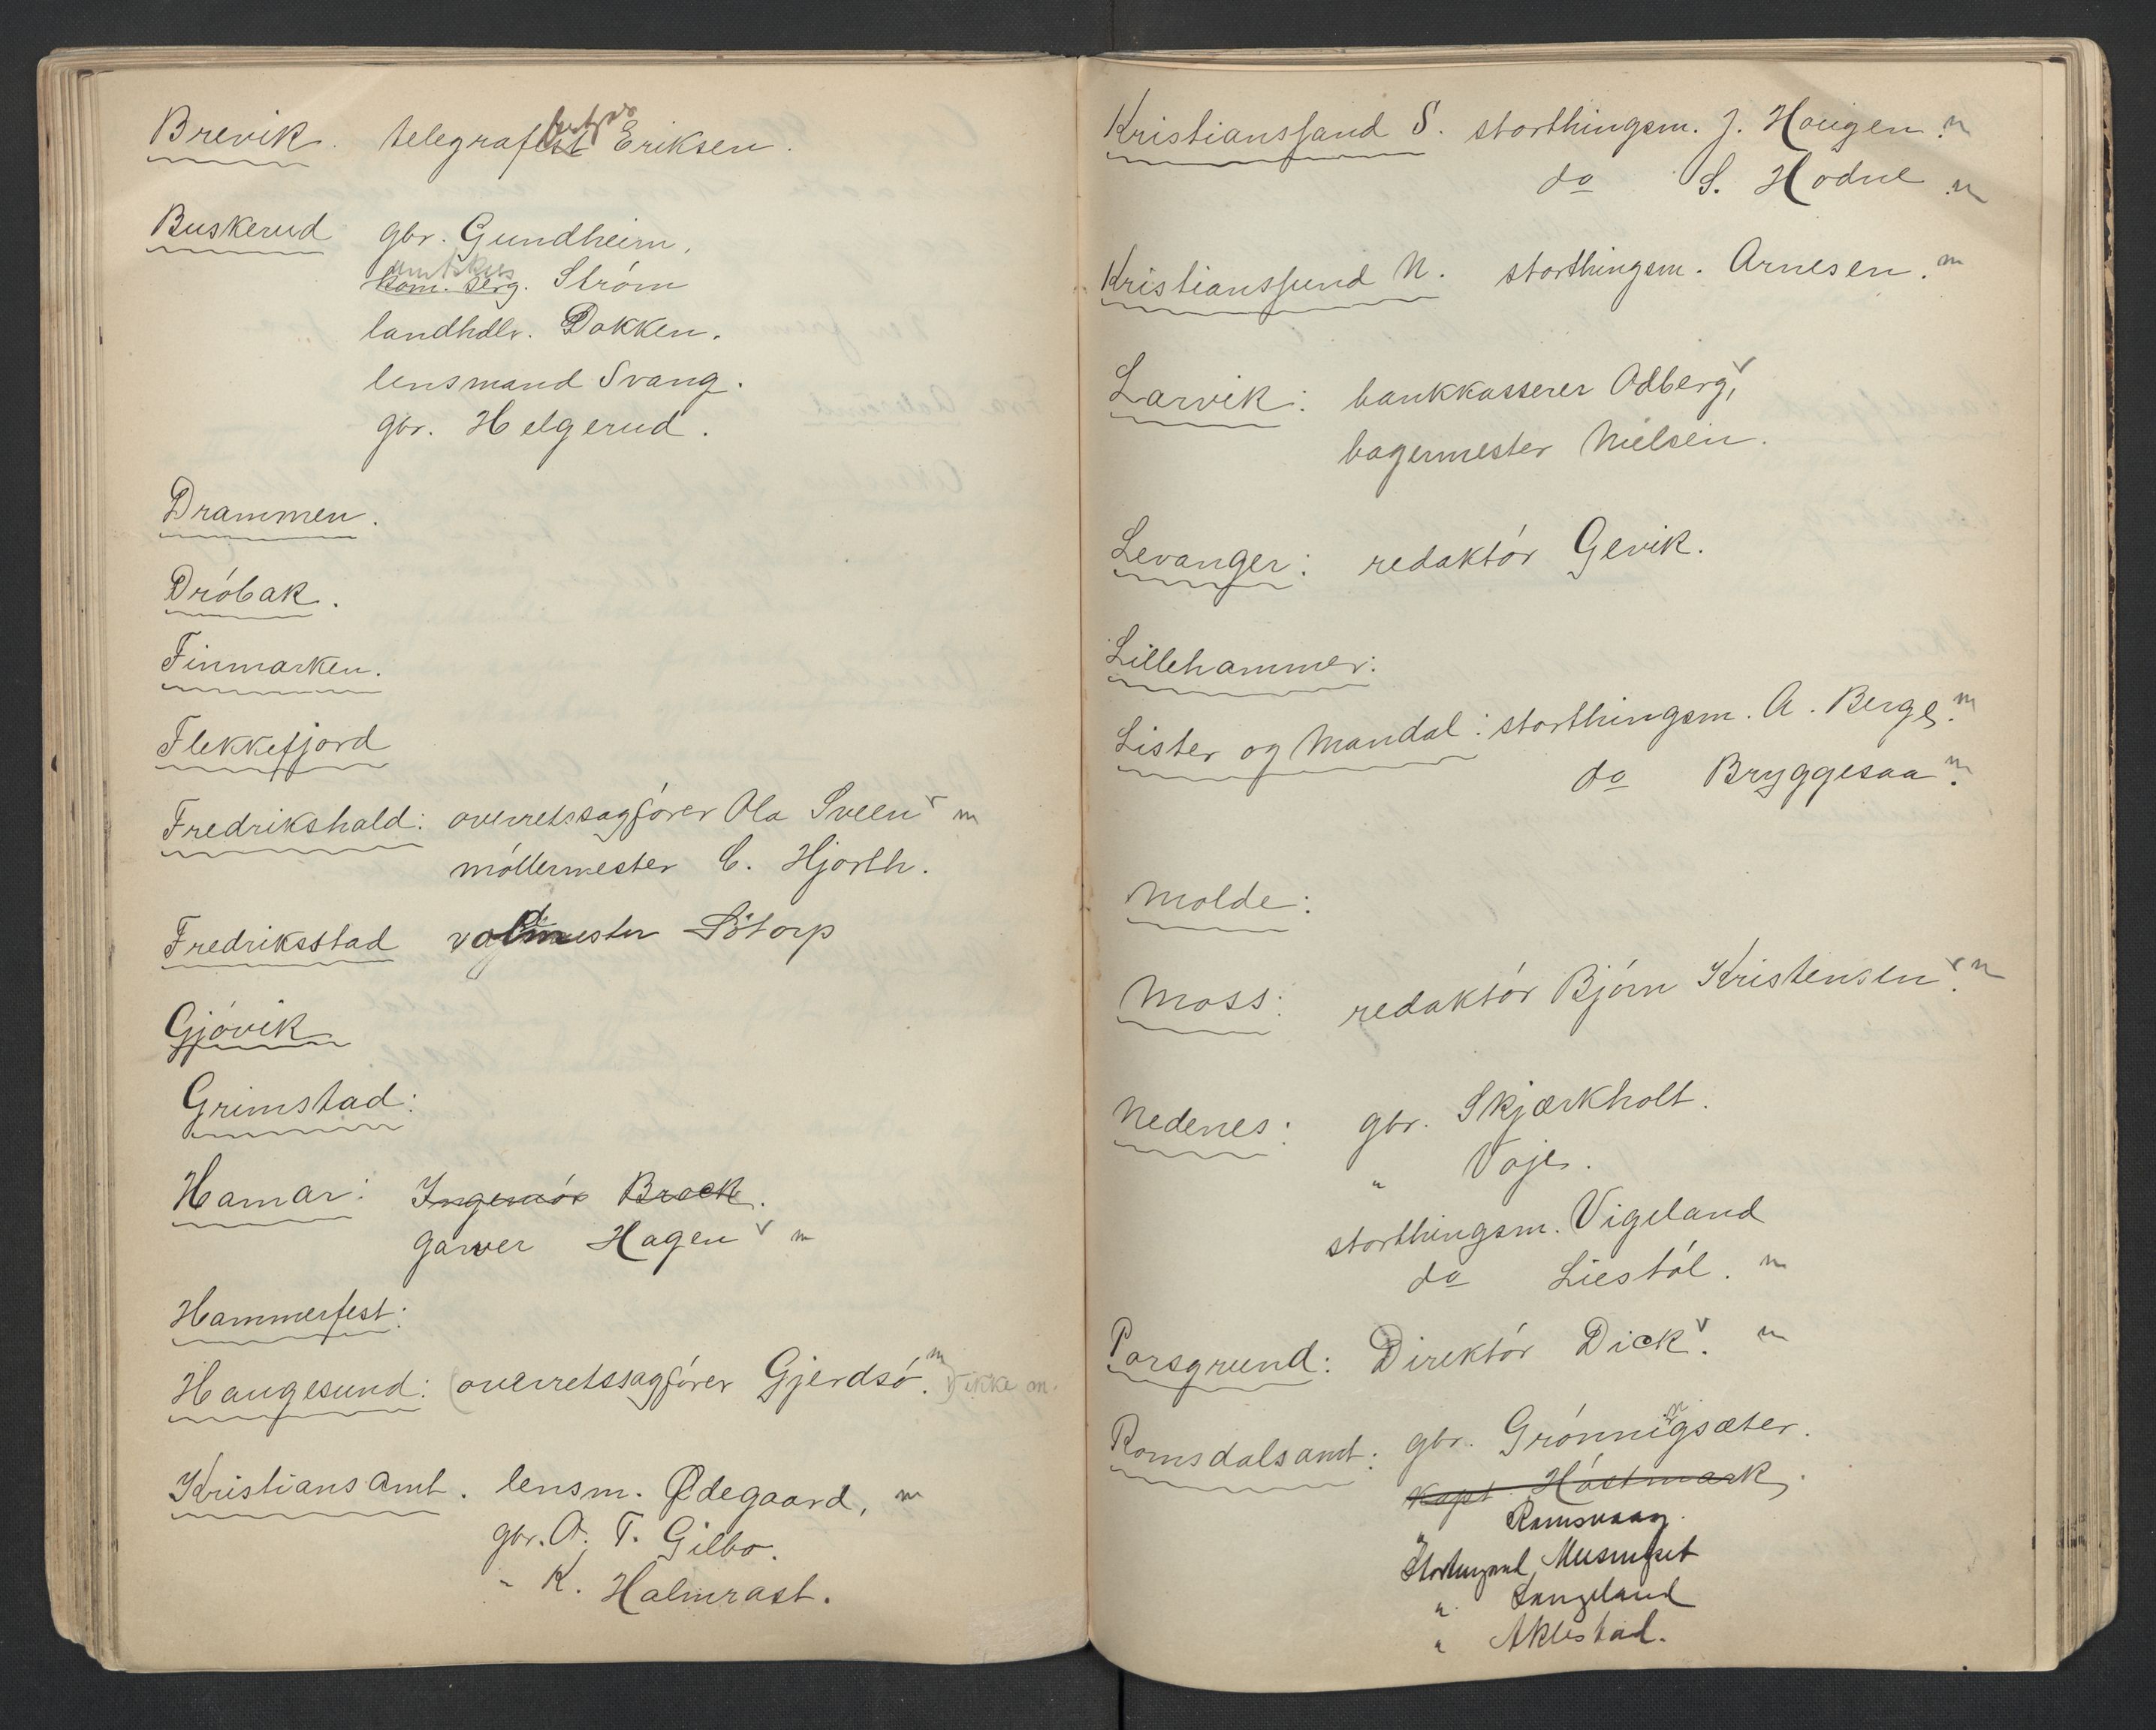 Brevik. telegrafbestyr Eriksen.
Buskerud gbr. Gundheim,
amtskas Ström
landhdlr. Dokken.
lensmand Svang.
gbr. Helgerud.
Drammen.
Dróbak.
Finmarken.
Flekkefjord
Fredrikshald: overretssagfórer Ola Sveen v m
móllermester C. Hjorth.
Fredriksstad Sótorp
Gjóvik
Grimstad:
Hamar: Ingeniór Brock.
Garver Hagen v m
Hammerfest:
Haugesund: (overretssagfórer Gjerdsó. m) ikke m.
Kristians amt. lensm. Ødegaard, m
gbr. A. T. Gilbo.
" K. Halmrast.
Kristianssand S. storthingsm. J. Hougen. m
do S. Hodne m
Kristianssund N. storthingsm. Arnesen. m
Larvik: bankkasserer Odberg, v
bagermester Nielsen.
Levanger: redaktór Gevik.
Lillehammer:
Lister og Mandal: storthingsm. A. Berge. m
do Bryggesaa. m
Molde:
Moss: redaktór Bjórn Kristensen. v m
Nedenes: gbr. Skjærkholt.
" Voje.
storthingsm. Vigeland
do Liestól. m
Porsgrund: Direktór Dick. v m
Romsdalsamt: gbr. Grónningsæter.
kapt. Hóstmark,
" Ramsvaag.
Storthingsmd. Musengset
" Langeland
" Aklestad.